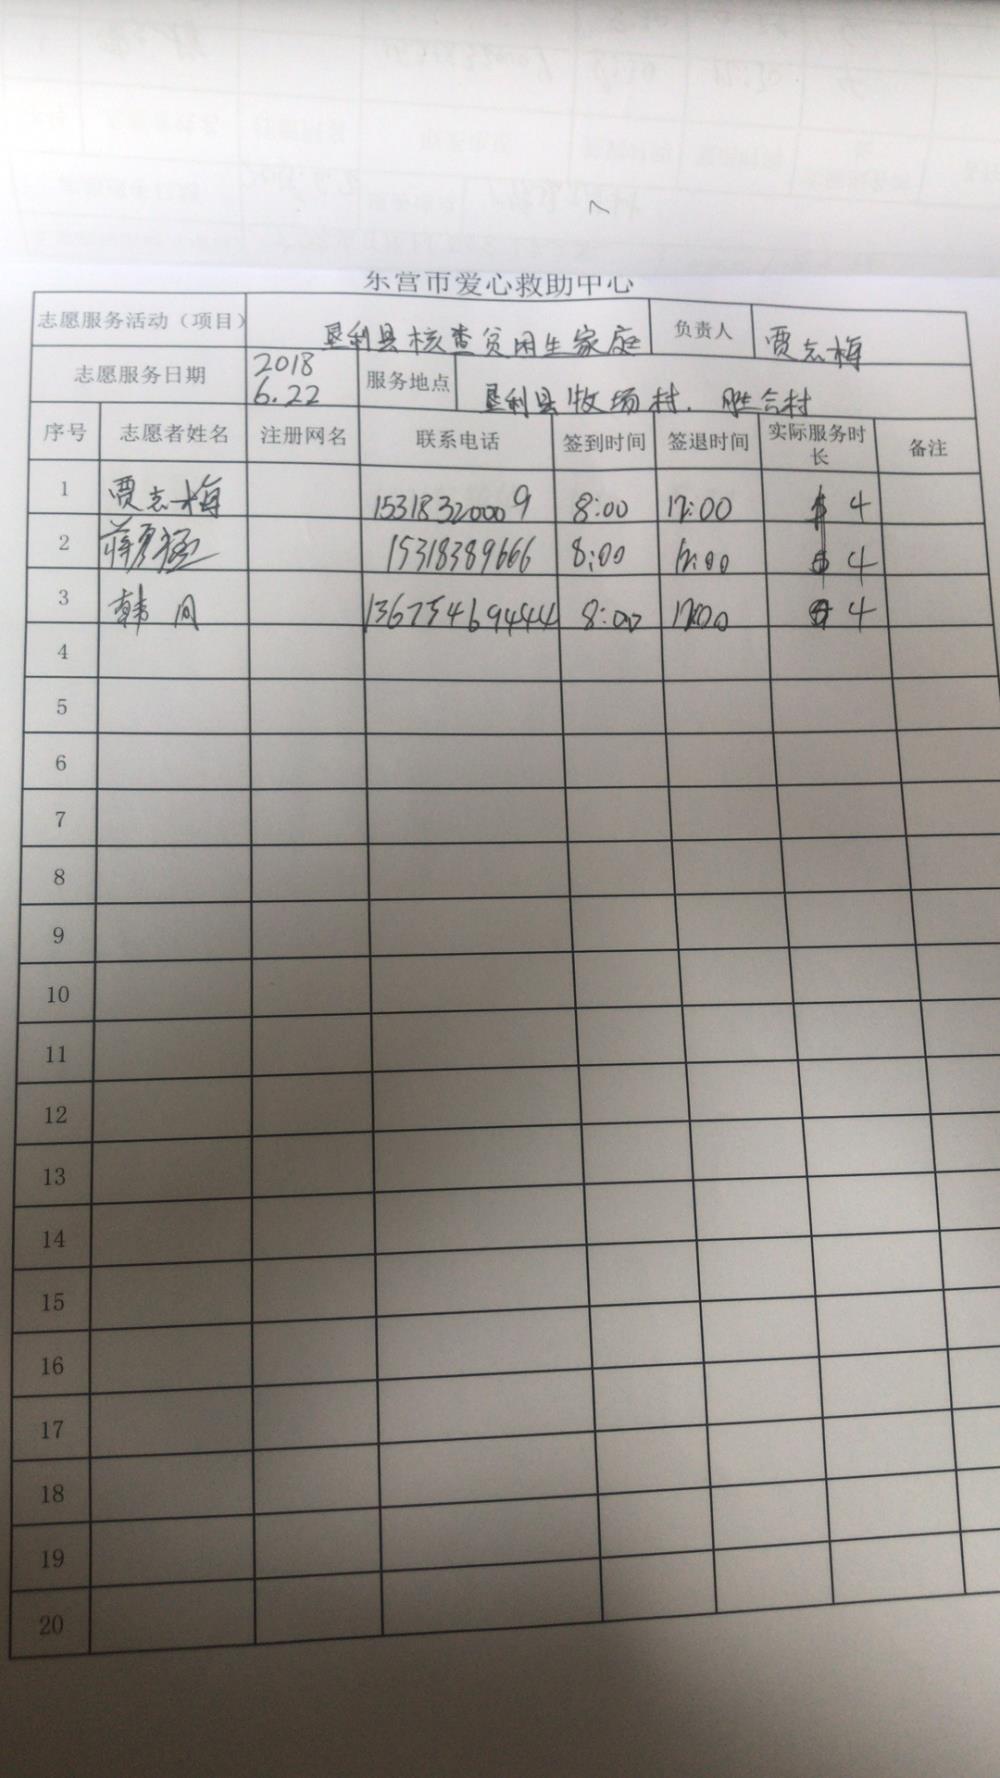 东营市爱心救助中心
志愿服务活动（项目） 垦利县核查贫困生家庭 负责人 贾志梅
志愿服务日期 2018 6.22 服务地点 垦利县牧场村、胜合村
序号 志愿者姓名 注册网名 联系电话 签到时间 签退时间 实际服务时长 备注
1 贾志梅 15318320009 8:00 12:00 4
2 蒋 15318389666 8:00 12:00 4
3 韩月 13675469444 8:00 12:00 4
4
5
6
7
8
9
10
11
12
13
14
15
16
17
18
19
20